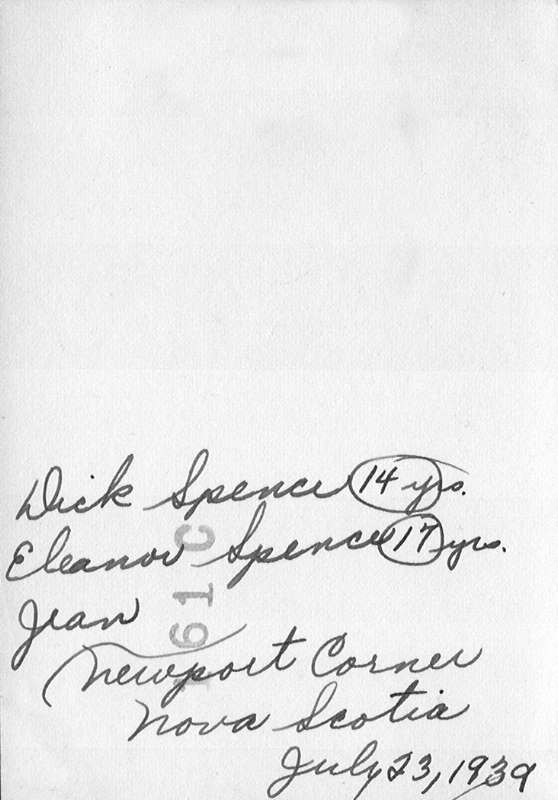 Dick Spence 14 yrs.
Eleanor Spence 17 yrs.
Jean
Newport Corner
Nova Scotia
July 23, 1939
161 C